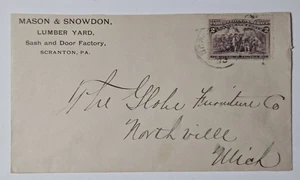 MASON & SNOWDON,
LUMBER YARD,
Sash and Door Factory,
SCRANTON, PA.
The Globe Furniture Co
Northville
Mich